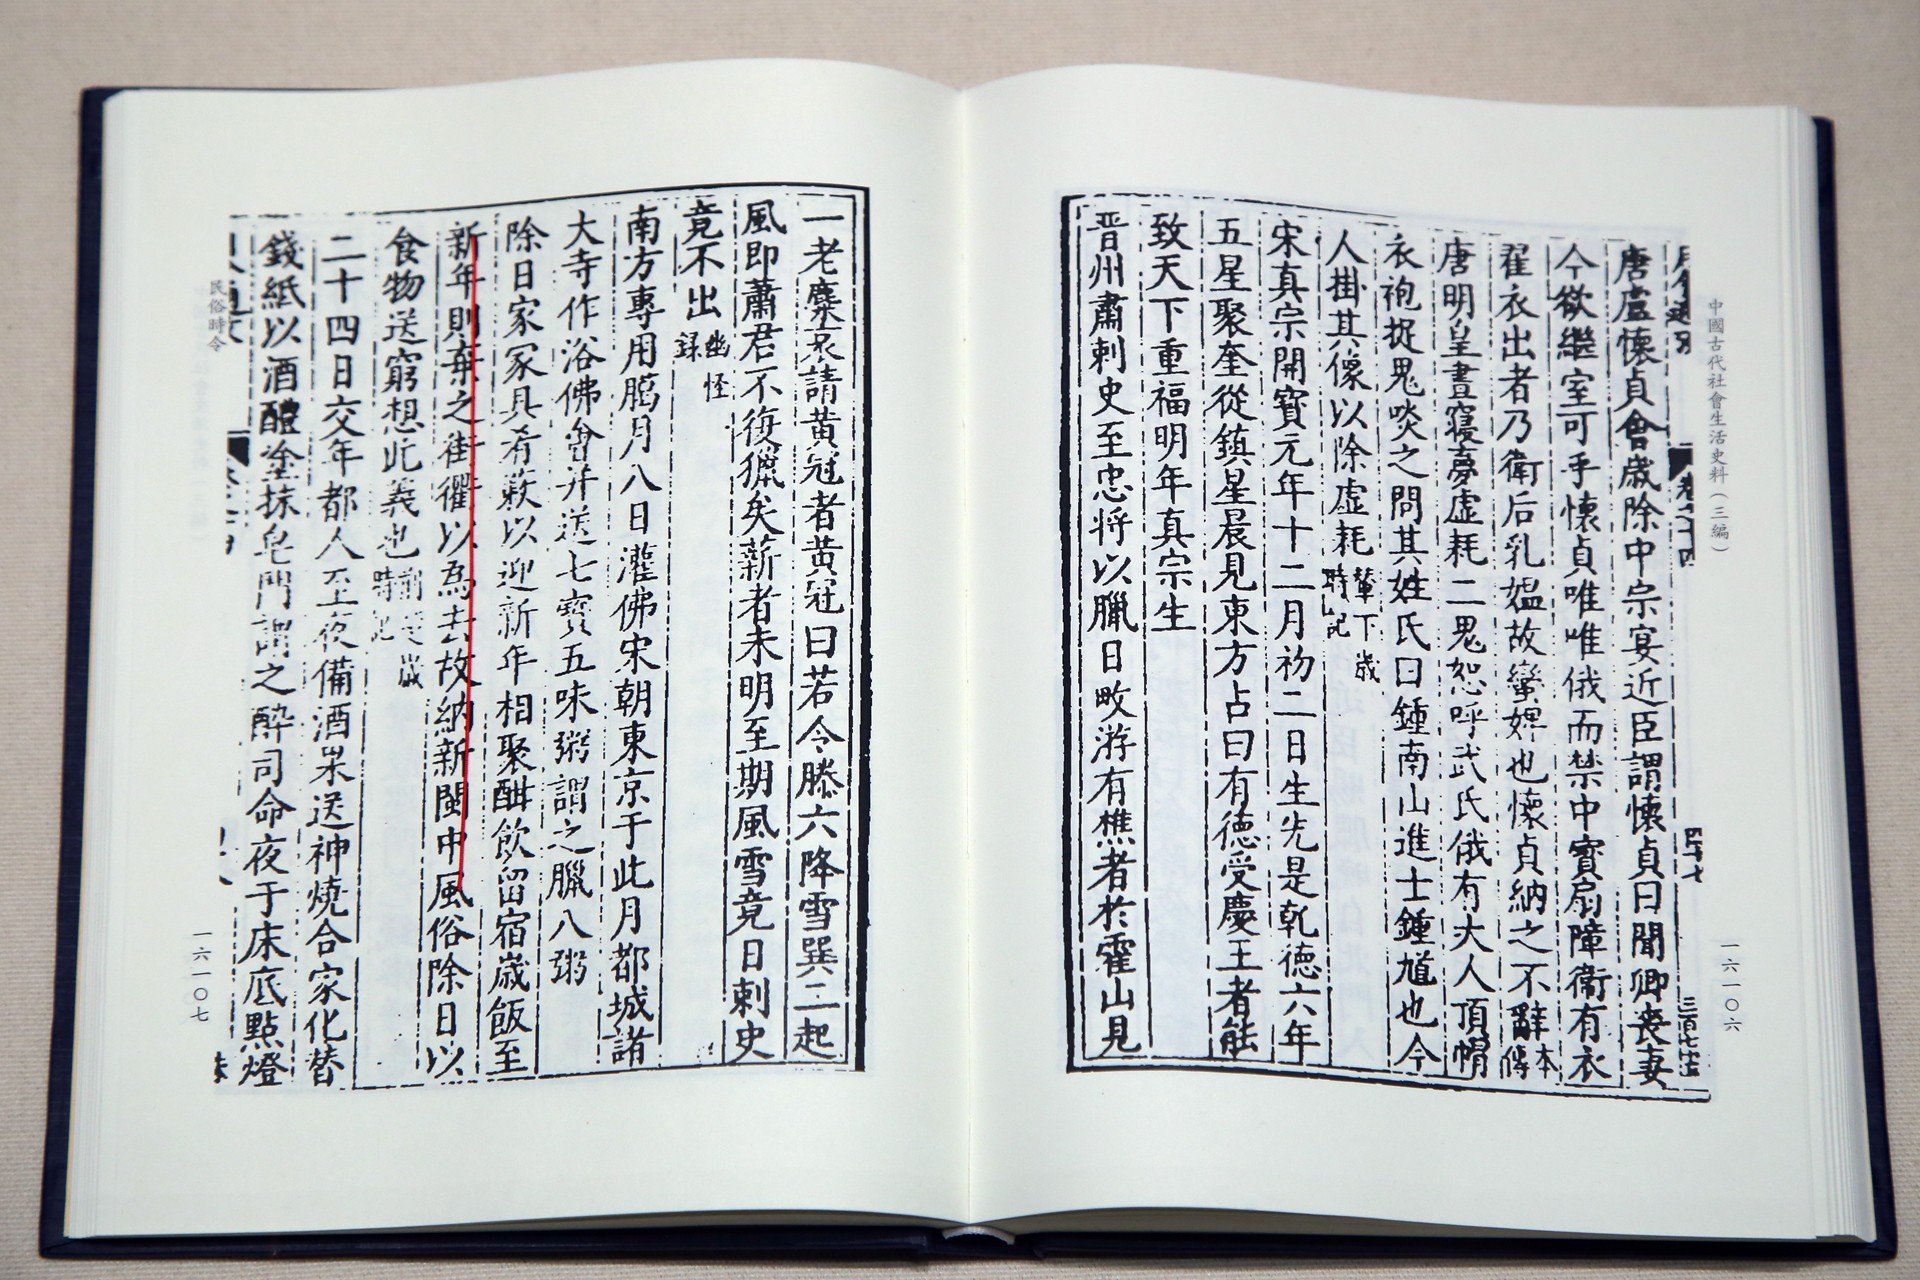 中國古代社會生活史料（三編）
一六一〇六
唐盧懷貞會歲除中宗宴近臣謂懷貞曰聞卿喪妻
今欲繼室可乎懷貞唯唯俄而禁中寳扇障衞有衣
翟衣出者乃衛后乳媪故蠻婢也懷貞納之不辭本傳
唐明皇晝寢夢虛耗二鬼怒呼武氏俄有大人頂帽
衣袍捉鬼啖之問其姓氏曰鍾南山進士鍾馗也今
人掛其像以除虛耗輦下歲時記
宋真宗開寳元年十二月初二日生先是乾德六年
五星聚奎從鎮星晨見東方占曰有德受慶王者能
致天下重福明年真宗生
晋州肅刺史至忠將以臘日畋游有樵者於霍山見
一老麋哀請黃冠者黃冠曰若令滕六降雪巽二起
風即蕭君不復獵矣薪者未明至期風雪竟日刺史
竟不出幽怪録
南方專用臈月八日灌佛宋朝東京于此月都城諸
大寺作浴佛會并送七寳五味粥謂之臘八粥
除日家冢具肴蔌以迎新年相聚酣飲留宿歲飯至
新年則棄之街衢以為去故納新閩中風俗除日以
食物送窮想此義也歲時記
二十四日交年都人至夜備酒果送神燒合家化替
錢紙以酒醴塗抹皂門謂之醉司命夜于床底點燈
民俗時令
一六一〇七